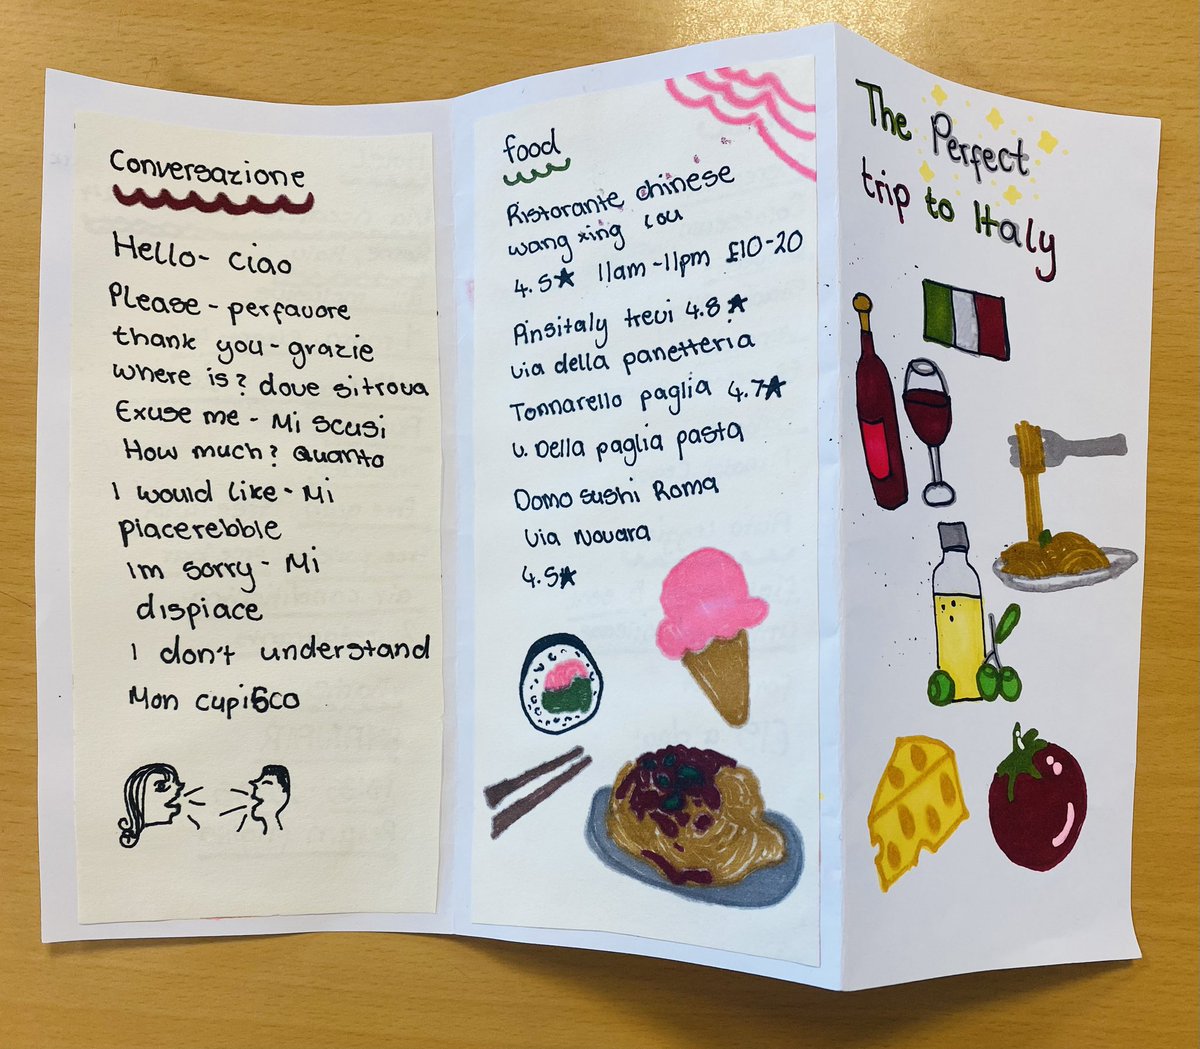 Conversazione
Hello- ciao
Please - perfavore
thank you - grazie
where is? dove sitrova
Exuse me - Mi scusi
How much? Quanto
I would like - Mi
piacerebble
im sorry - Mi
dispiace
I don't understand
Mon cupisco
food
Ristorante chinese
wang xing Lou
4.5★ 11am-11pm £10-20
Pinsitaly trevi 4.8★
via della panetteria
Tonnarello paglia 4.7★
v. Della paglia pasta
Domo sushi Roma
Via Novara
4.5★
The Perfect
trip to Italy